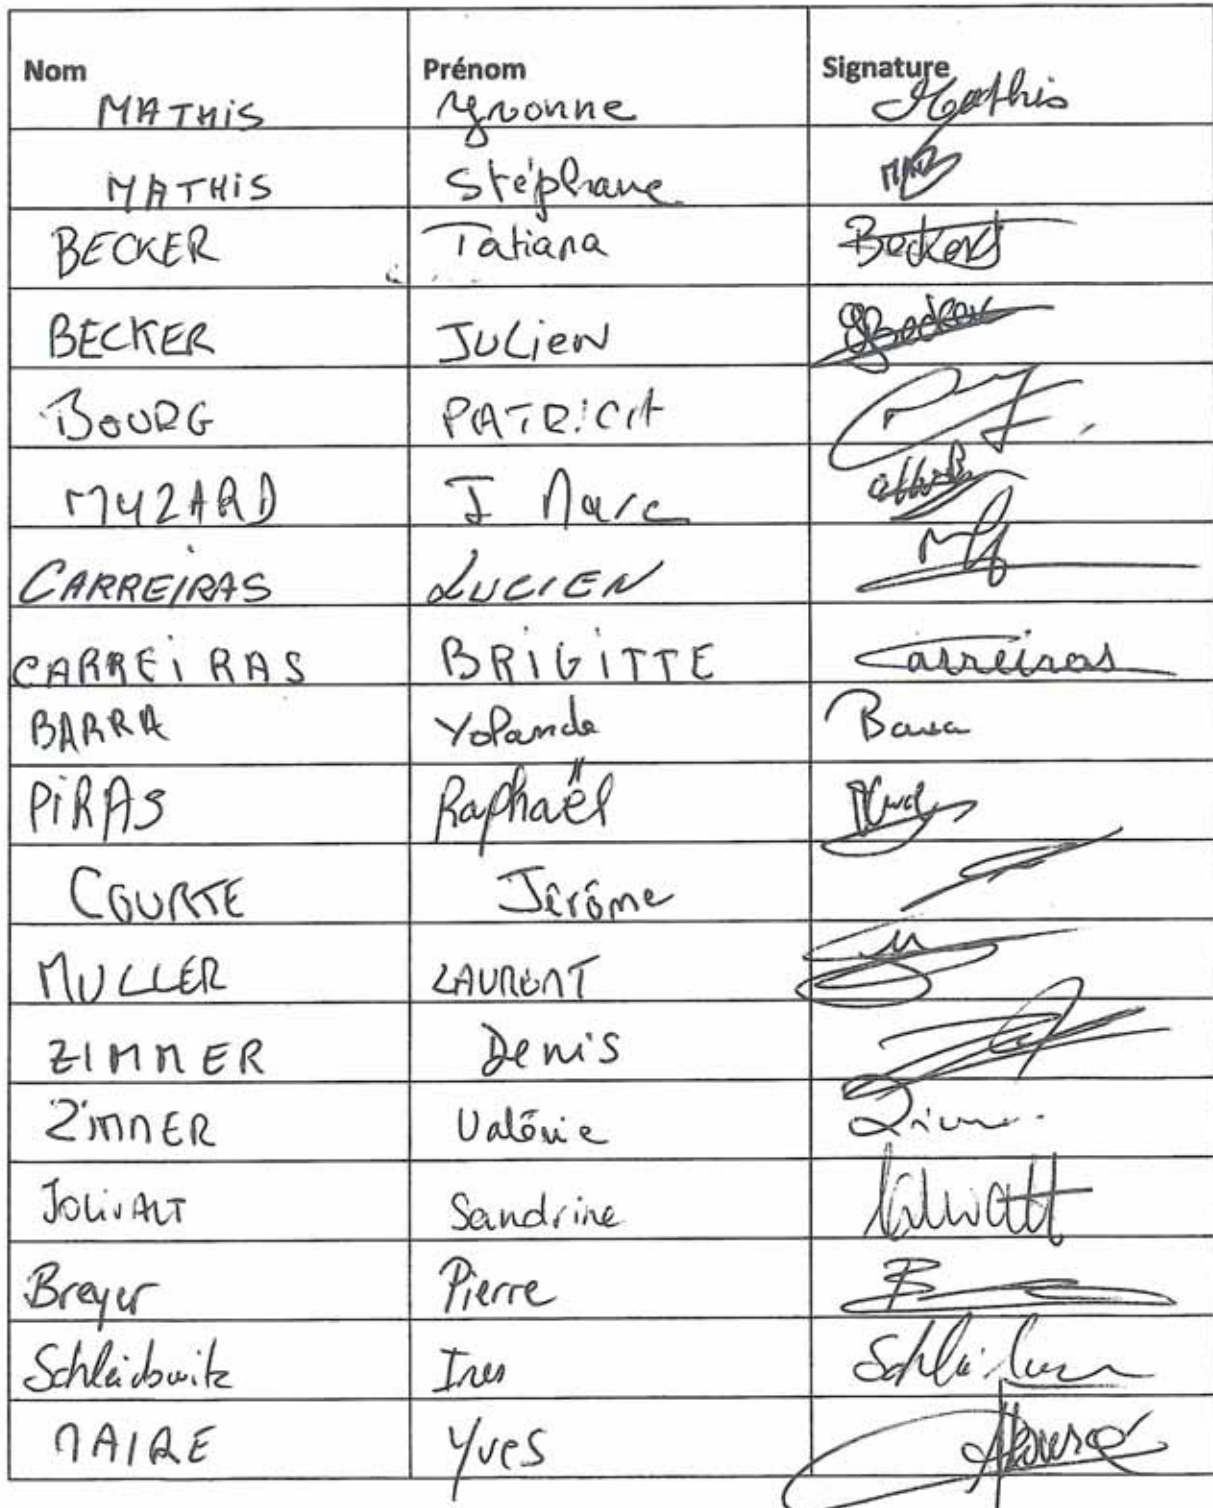 Nom Prénom Signature
MATHIS Yvonne Mathis
MATHIS Stéphane
BECKER Tatiana Becker
BECKER JULien Becker
BOURG PATRiCiA
MUZARD J Marc
CARREIRAS LUCIEN
CARREiRAS BRiGiTTE Carreiras
BARRA Yolande Barra
PiRAS Raphaël
COURTE Jérôme
MULLER LAURENT
ZIMMER Denis
ZiMMER Valérie
JOLiVALT Sandrine
Breyer Pierre
Ines
MAIRE Yves